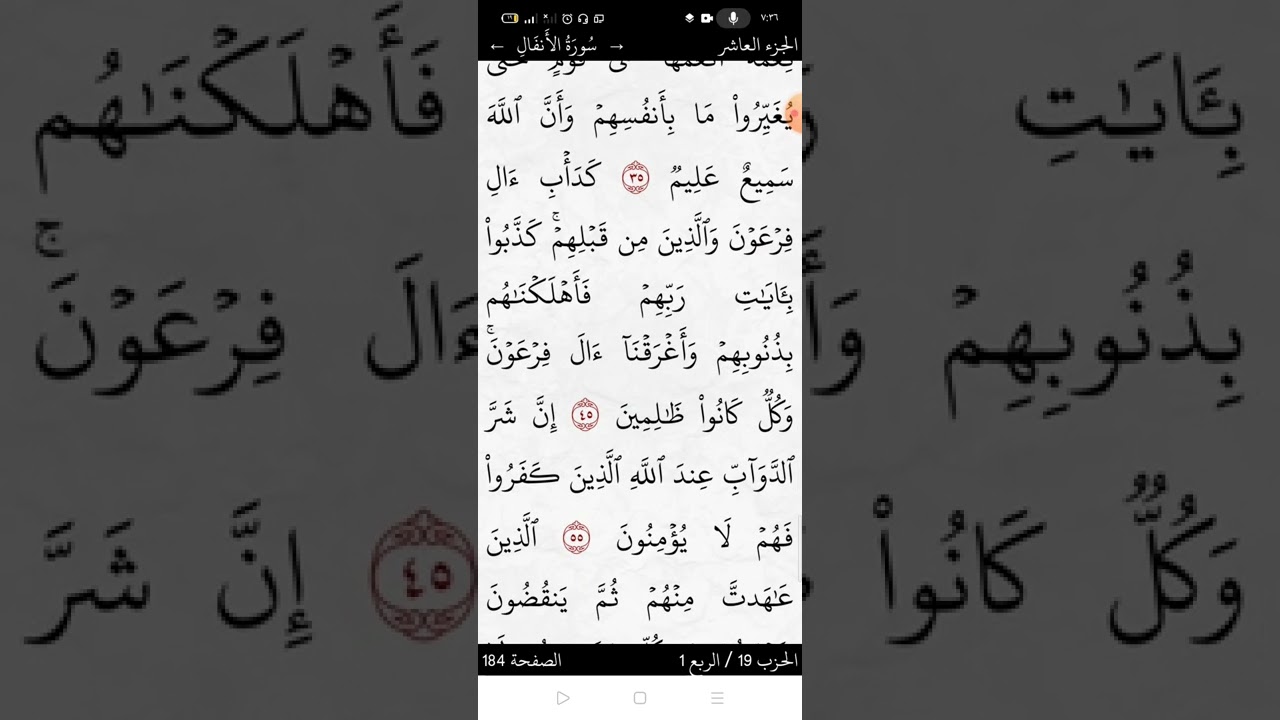 ٧:٣٦
الجزء العاشر → سُورَةُ الأَنفَالِ ←
يُغَيِّرُوا۟ مَا بِأَنفُسِهِمۡ وَأَنَّ ٱللَّهَ
سَمِيعٌ عَلِيمٌۭ ٣٥ كَدَأۡبِ ءَالِ
فِرۡعَوۡنَ وَٱلَّذِينَ مِن قَبۡلِهِمۡۚ كَذَّبُوا۟
بِـَٔايَـٰتِ رَبِّهِمۡ فَأَهۡلَكۡنَـٰهُم
بِذُنُوبِهِمۡ وَأَغۡرَقۡنَآ ءَالَ فِرۡعَوۡنَۚ
وَكُلٌّۭ كَانُوا۟ ظَـٰلِمِينَ ٤٥ إِنَّ شَرَّ
ٱلدَّوَآبِّ عِندَ ٱللَّهِ ٱلَّذِينَ كَفَرُوا۟
فَهُمۡ لَا يُؤۡمِنُونَ ٥٥ ٱلَّذِينَ
عَـٰهَدتَّ مِنۡهُمۡ ثُمَّ يَنقُضُونَ
الحزب 19 / الربع 1 الصفحة 184